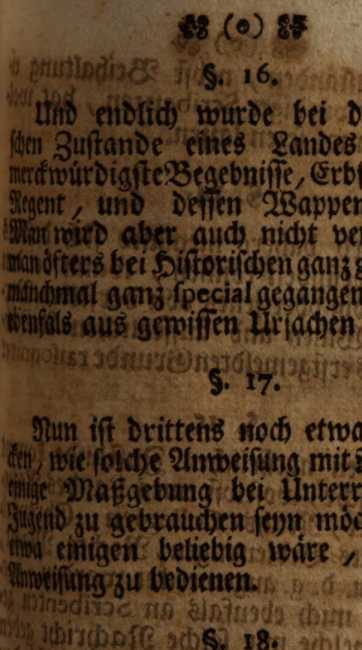 (o)
§. 16.
Und endlich wurde bei d
schen Zustande eines Landes
merckwürdigste Begebnisse, Erbf
Regent, und dessen Wappen
Man wird aber auch nicht ver
man öfters bei Historischen ganz
manchmal ganz special gegangen
ebenfals aus gewissen Ursachen
§. 17.
Nun ist drittens noch etwa
cken, wie solche Anweisung mit
einige Maßgebung bei Unterr
Jugend zu gebrauchen seyn möc
etwa einigen beliebig wäre,
Anweisung zu bedienen.
§. 18.